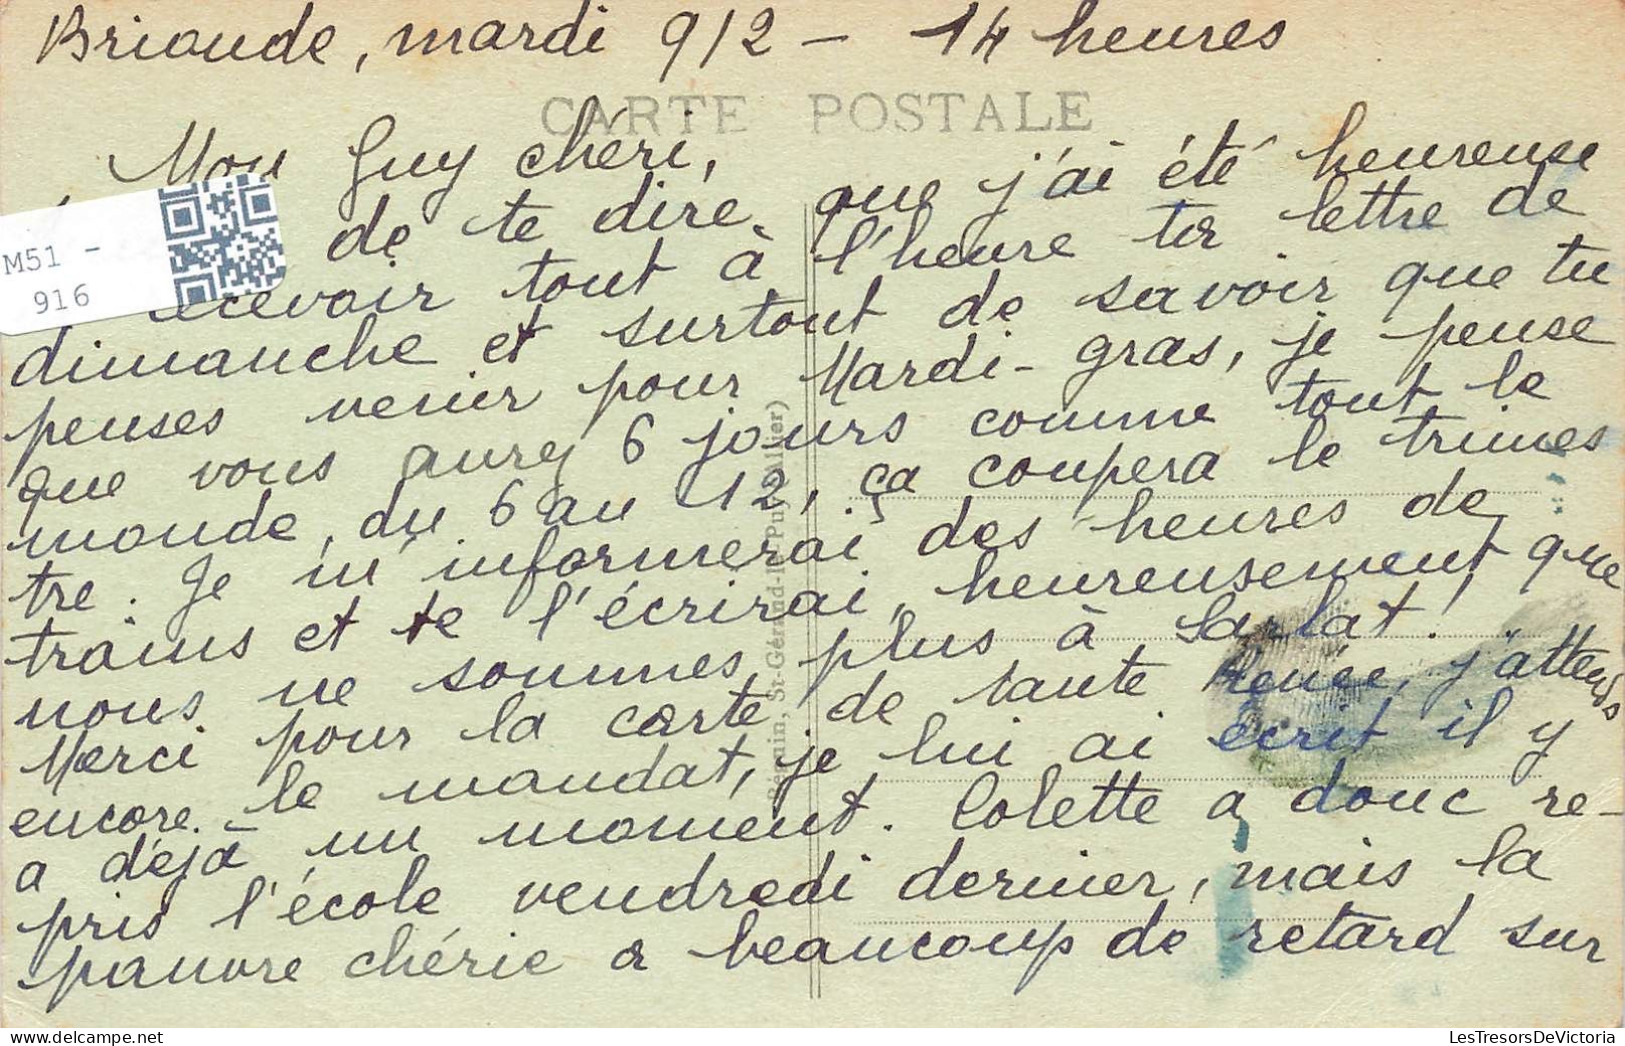 Brioude, mardi 9/2 - 14 heures
CARTE POSTALE
Mon Guy chéri,
de te dire que j'ai été heureuse
recevoir tout à l'heure ta lettre de
dimanche et surtout de savoir que tu
penses venir pour Mardi-gras, je pense
que vous aurez 6 jours comme tout le
monde, du 6 au 12, ça coupera le trimes
tre. Je m'informerai des heures de
trains et te l'écrirai, heureusement que
nous ne sommes plus à Sarlat!
Merci pour la carte de tante Renée, j'attends
encore le mandat, je lui ai écrit il y
a déjà un moment. Colette a donc re-
pris l'école vendredi dernier, mais la
pauvre chérie a beaucoup de retard sur
M51 -
916
St-Gérand-le-Puy (Allier)
LesTresorsDeVictoria
www.delcampe.net